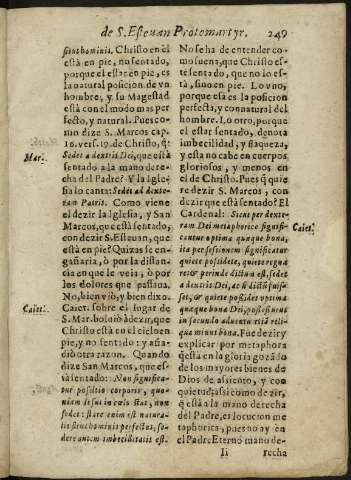 de S. Estevan Protomartyr. 249
sicut hominis. Christo en el
està en pie, no sentado,
porque el estar en pie, es
la natural posicion de vn
hombre, y su Magestad
està con el modo mas per
fecto, y natural. Pues co-
mo dize S. Marcos cap.
16. vers. 19. de Christo, q̃:
Mar.
Sedet a dextris Dei, que està
sentado a la mano dere-
cha del Padre? Y la Igle-
sia lo canta: Sedet ad dexte-
ram Patris. Como viene
el dezir la Iglesia, y San
Marcos, que està sentado,
con dezir S. Estevan, que
està en pie? Quizas se en-
gañaria, ò por la distan-
cia en que le veia, ò por
los dolores que passava.
No, bien viò, y bien dixo.
Caiet.
Caiet. sobre el lugar de
S. Mar. bolviò à dezir, que
Christo està en el cielo en
pie, y no sentado: y aña-
diò otra razon. Quando
dize San Marcos, que es-
tà sentado: Non significa-
tur positio corporis, quo-
niam Iesus in cœlis stat, non
sedet: stare enim est natura-
lis situs hominis perfectus, se-
dere autem imbecillitatis est.
No se ha de entender co-
mo suena, que Christo es-
tè sentado, que no lo es-
tà, sino en pie. Lo vno,
porque essa es la posicion
perfecta, y connatural del
hombre. Lo otro, porque
el estar sentado, denota
imbecilidad, y flaqueza,
y esta no cabe en cuerpos
gloriosos, y menos en
el de Christo. Pues q̃ quie
re dezir S. Marcos, con
dezir que està sentado? El
Cardenal: Sicut per dexte-
Caiet.
ram Dei metaphorice signifi-
cantur optima quæque bona,
ita per sessionem significatur
quiete possidere, quiete regna
re: & perinde dictum est, sedet
a dextris Dei, ac si dictũ fuis-
set, & quiete possidet optima
quæque bona Dei, possessurus
in secundo adventu etiã reli-
qua minus bona. Fue dezir y
explicar por metaphora
q̃ està en la gloria gozãdo
de los mayores bienes de
Dios de assiento, y con
quietud; assi como dezir,
q̃ està a la mano derecha
del Padre, es locucion me
taphorica, pues no ay en
el Padre Eterno mano de-
Ii recha